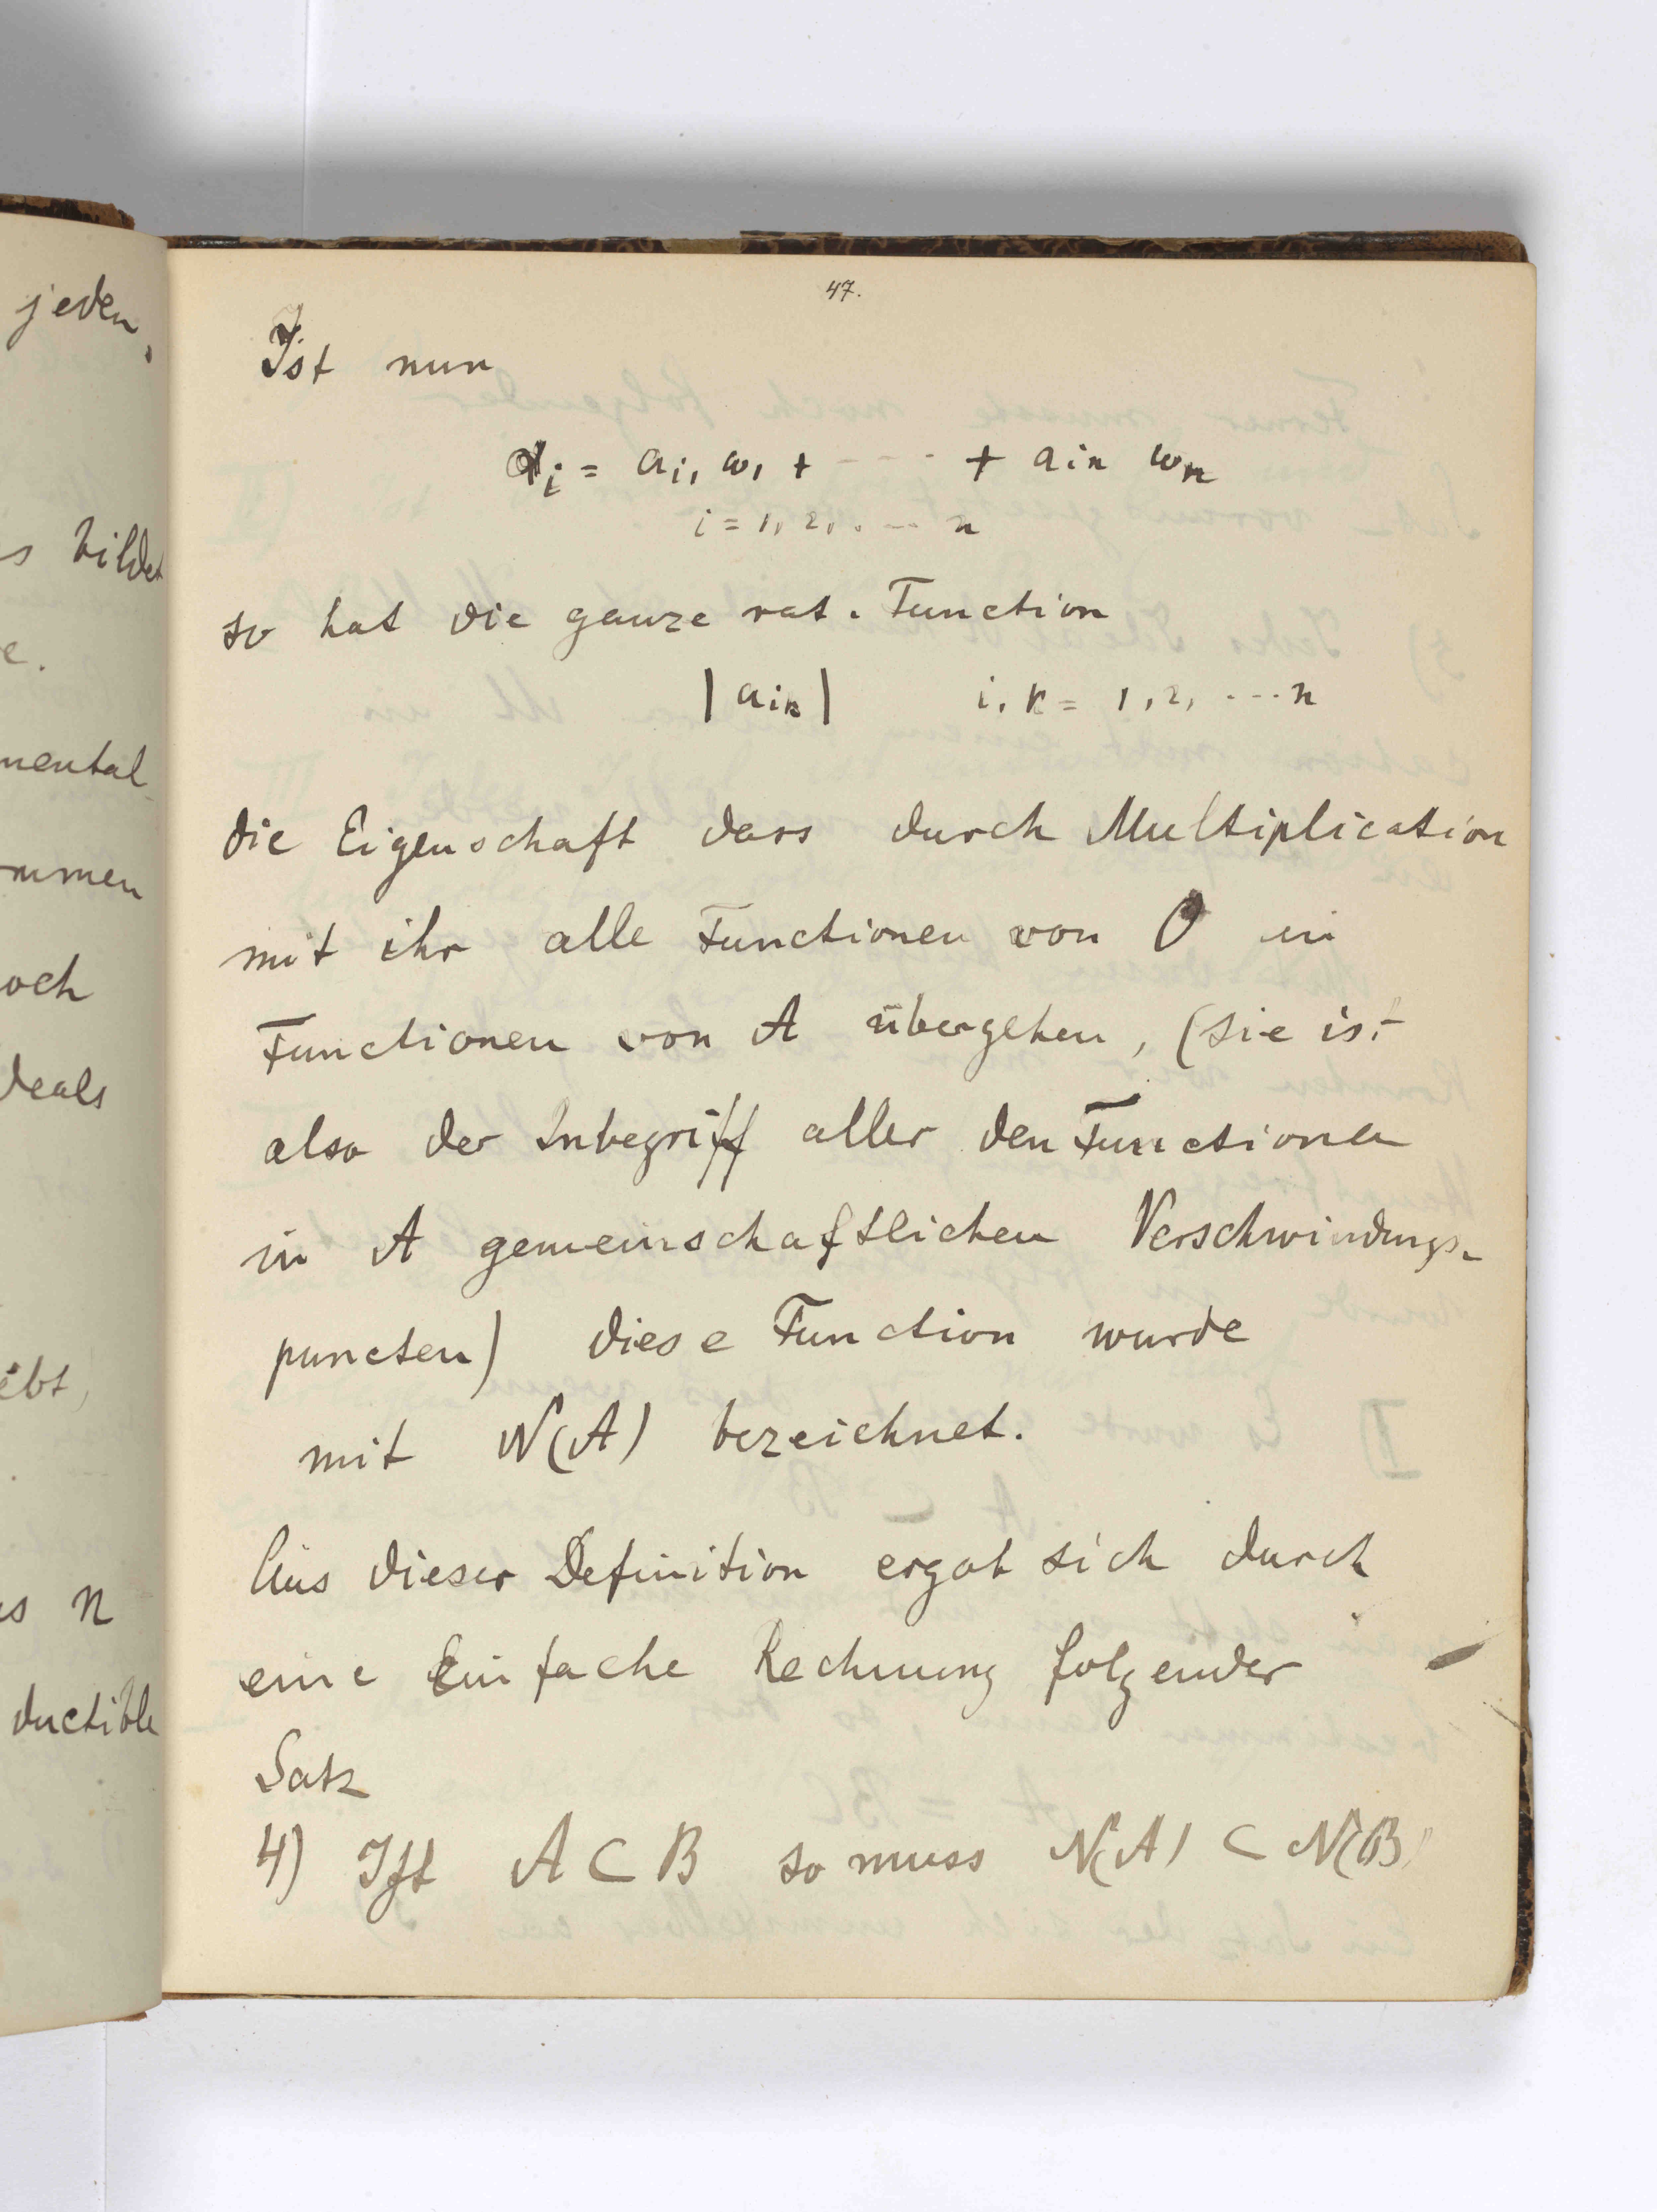 jeden,
s bildet
e.
mental
mmen
och
deals
ebt,
s n
ductible
47.
Ist nun
αi = ai1 ω1 + - - - - + ain ωn
i = 1, 2, . - - n
so hat die ganze rat. Function
|aik| i, k = 1, 2, - - - n
die Eigenschaft dass durch Multiplication
mit ihr alle Functionen von O in
Functionen von A übergehen, (sie ist
also der Inbegriff aller den Functionen
in A gemeinschaftlichen Verschwindungs-
puncten) diese Function wurde
mit N(A) bezeichnet.
Aus dieser Definition ergab sich durch
eine Einfache Rechnung folgender
Satz
4) Ist A ⊂ B so muss N(A) ⊂ N(B)